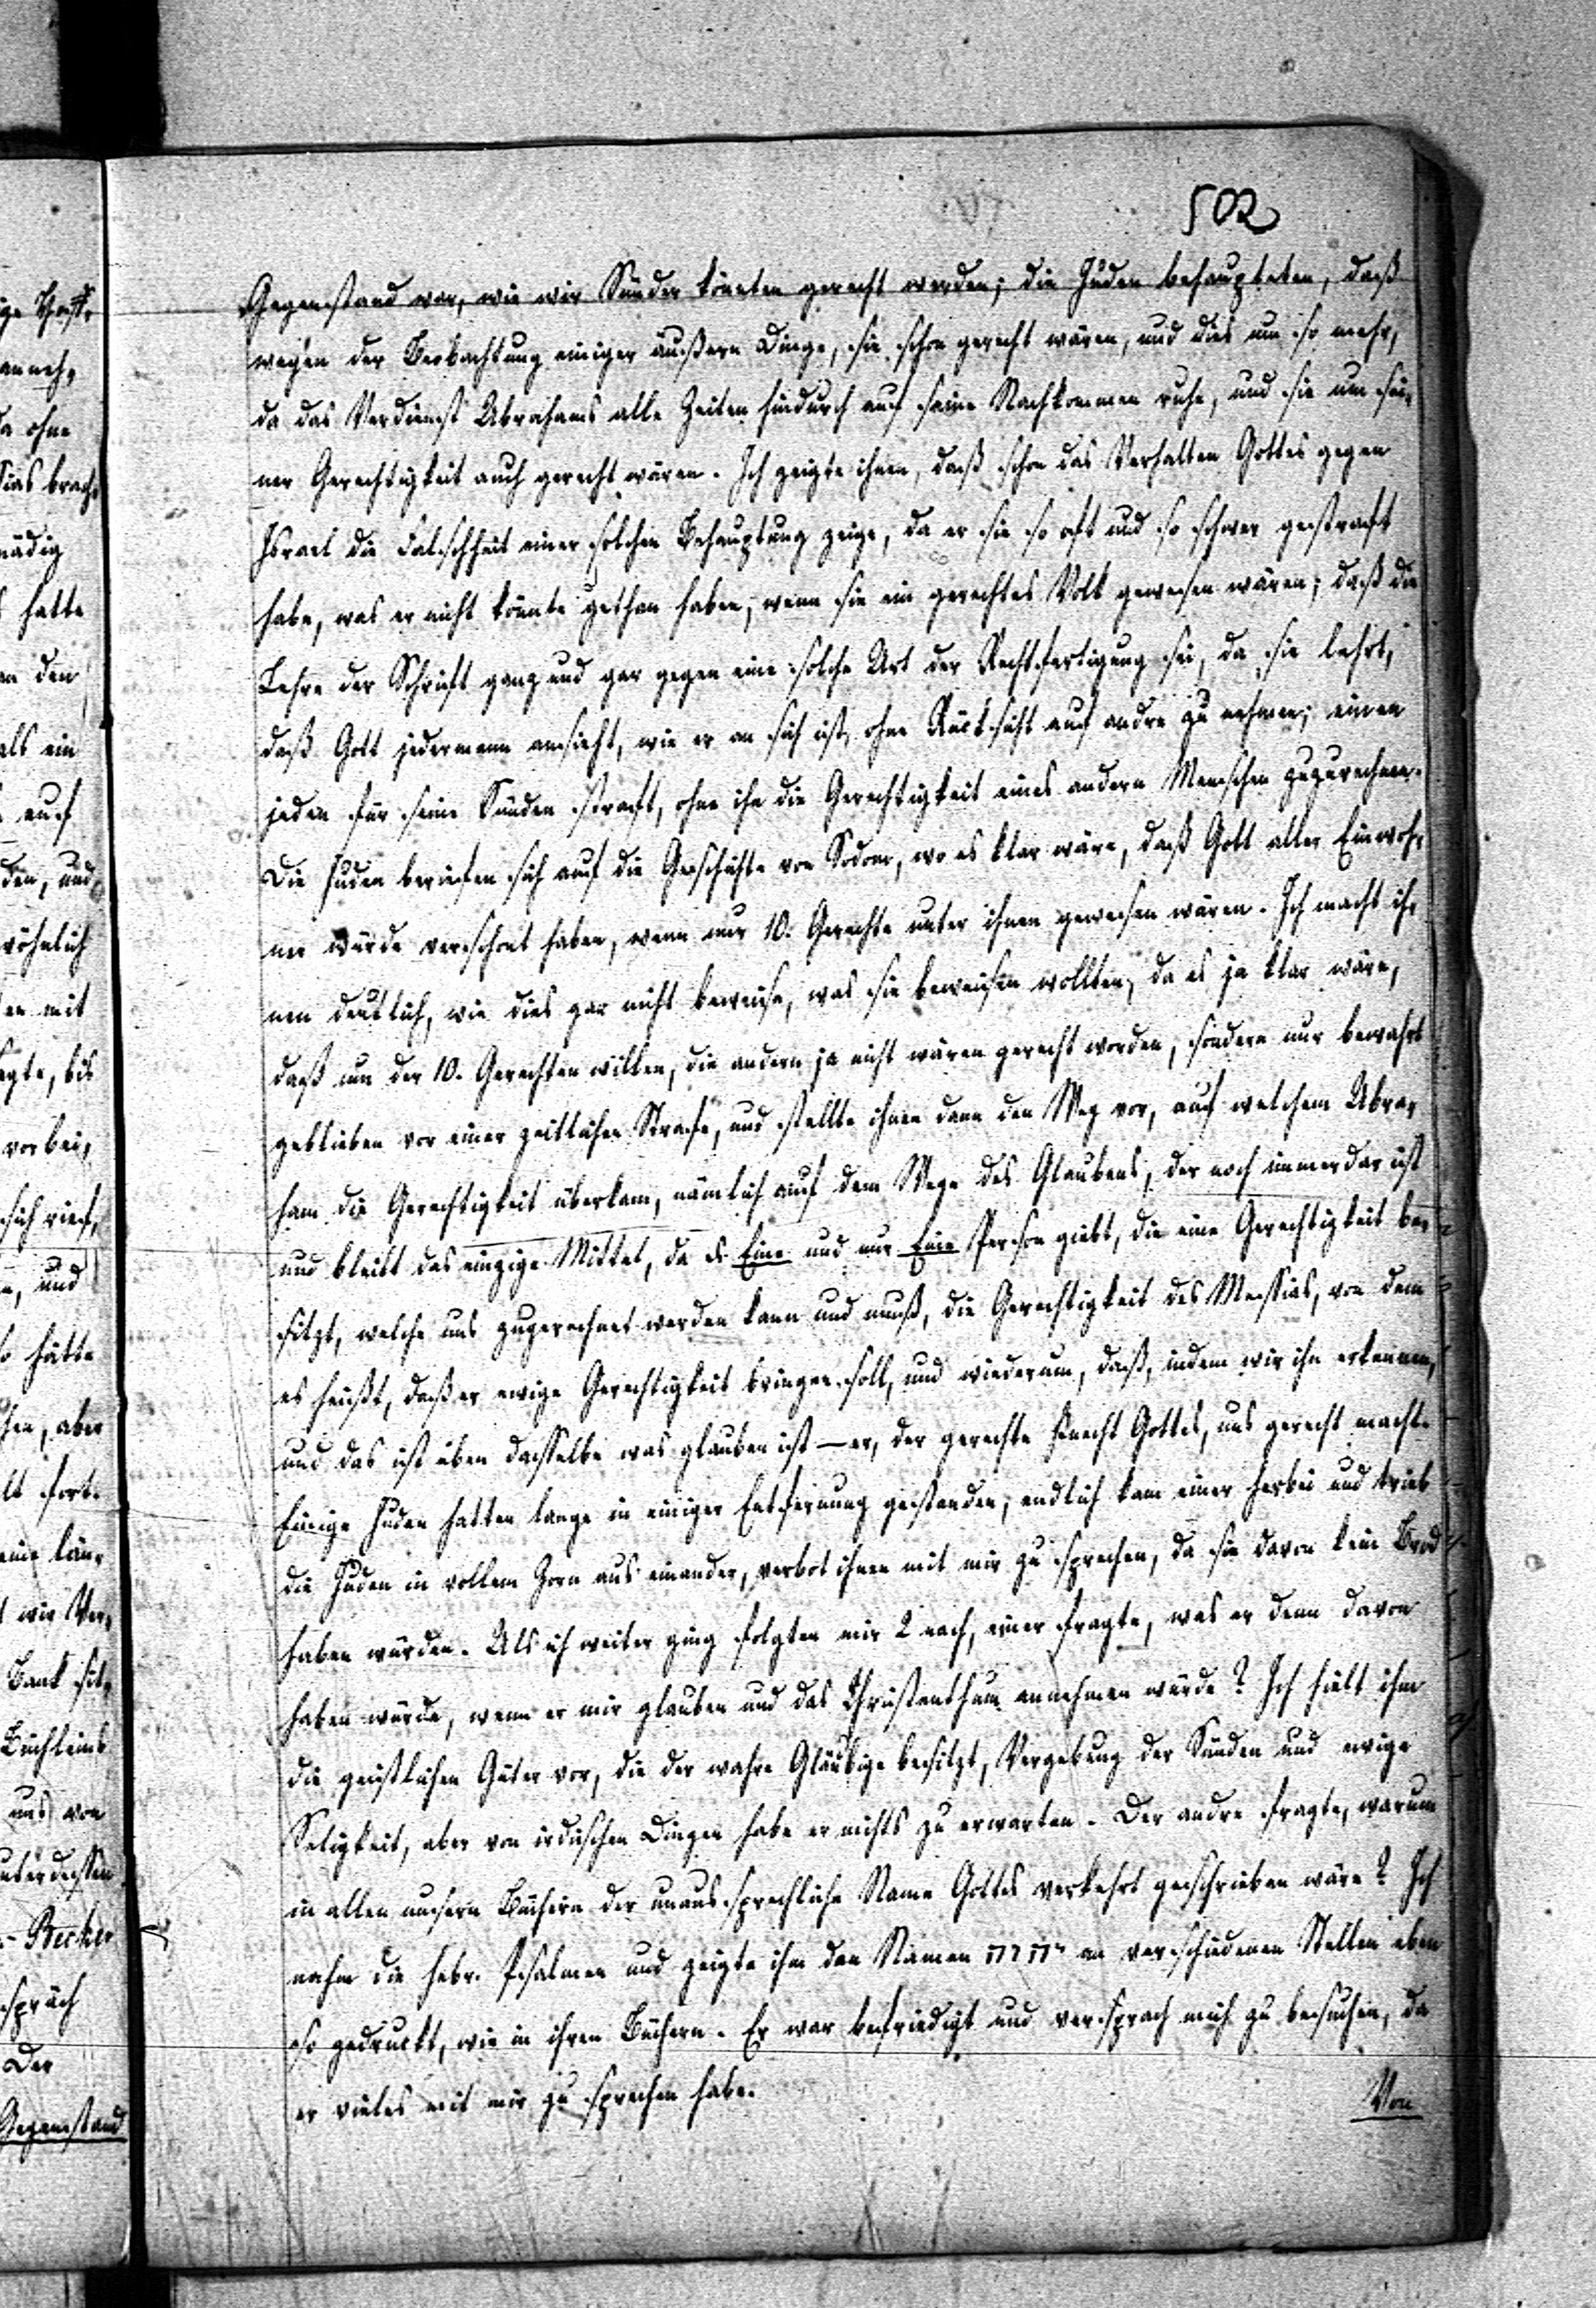 502
Gegenstand war, wie wir Sünder könnten gerecht werden; die Juden behaupteten, daß
wegen der Beobachtung einiger äußern Dinge, sie schon gerecht wären, und dies um so mehr,
da das Verdienst Abrahams alle Zeiten hindurch auf seine Nachkommen ruhe, und sie um sei-
ner Gerechtigkeit auch gerecht wären. Ich zeigte ihnen, daß schon das Verhalten Gottes gegen
Israel die Falschheit einer solchen Behauptung zeige, da er sie so oft und so schwer gestraft
habe, was er nicht könnte gethan haben, wenn sie ein gerechtes Volk gewesen wären; daß die
Lehre der Schrift ganz und gar gegen eine solche Art der Rechtfertigung sei, da sie lehrt,
daß Gott jedermann ansieht, wie er an sich ist, ohne Rücksicht auf andre zu nehmen; einen
jeden für seine Sünden straft, ohne ihm die Gerechtigkeit eines andern Menschen zuzurechnen.
Die Juden beriefen sich auf die Geschichte von Sodom, wo es klar wäre, daß Gott aller Einwoh-
ner würde verschont haben, wenn nur 10. Gerechte unter ihnen gewesen wären. Ich macht ih-
nen deutlich, wie dies gar nicht beweise, was sie beweisen wollten, da es ja klar wäre,
daß um der 10. Gerechten willen, die andern ja nicht wären gerecht worden, sondern nur bewahrt
geblieben vor einer zeitlichen Strafe, und stellte ihnen dann den Weg vor, auf welchem Abra-
ham die Gerechtigkeit überkam, nämlich auf dem Wege des Glaubens, der noch immerdar ist
und bleibt das einzige Mittel, da es Eine und nur Eine Person giebt, die eine Gerechtigkeit be-
sitzt, welche uns zugerechnet werden kann und muß, die Gerechtigkeit des Messias, von dem
es heißt, daß er ewige Gerechtigkeit bringen soll, und wiederum, daß, indem wir ihn erkennen,
und das ist eben dasselbe was glauben ist — er, der gerechte Knecht Gottes, uns gerecht mache.
Einige Juden hatten lange in einiger Entfernung gestanden, endlich kam einer herbei und trieb
die Juden in vollem Zorn aus einander, verbot ihnen mit mir zu sprechen, da sie davon kein Brod
haben würden. Als ich weiter ging folgten mir 2 nach, einer fragte, was er denn davon
haben würde, wenn er mir glauben und das Christenthum annehmen würde? Ich hielt ihm
die geistlichen Güter vor, die der wahre Gläubige besitzt, Vergebung der Sünden und ewige
Seligkeit, aber von irdischen Dingen habe er nichts zu erwarten. Der andre fragte, warum
in allen unsern Büchern der unaussprechliche Name Gottes verkehrt geschrieben wäre? Ich
nahm die hebr. Psalmen und zeigte ihm den Namen יהוה an verschiedenen Stellen eben
so gedruckt, wie in ihren Büchern. Er war befriedigt und versprach mich zu besuchen, da
er vieles mit mir zu sprechen habe.
Von